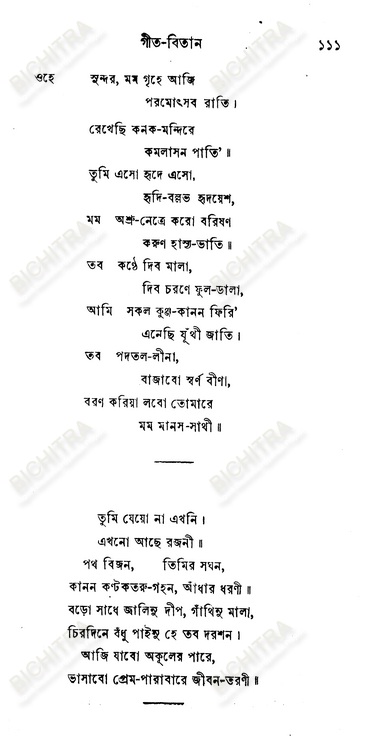 গীত-বিতান ১১১
ওহে সুন্দর, মম গৃহে আজি
পরমোৎসব রাতি।
রেখেছি কনক-মন্দিরে
কমলাসন পাতি'॥
তুমি এসো হৃদে এসো,
হৃদি-বল্লভ হৃদয়েশ,
মম অশ্রু-নেত্রে করো বরিষণ
করুণ হাস্য-ভাতি॥
তব কণ্ঠে দিব মালা,
দিব চরণে ফুল-ডালা,
আমি সকল কুঞ্জ-কানন ফিরি'
এনেছি যূঁথী জাতি।
তব পদতল-লীনা,
বাজাবো স্বর্ণ বীণা,
বরণ করিয়া লবো তোমারে
মম মানস-সাথী॥
তুমি যেয়ো না এখনি।
এখনো আছে রজনী॥
পথ বিজন, তিমির সঘন,
কানন কণ্টকতরু-গহন, আঁধার ধরণী॥
বড়ো সাধে জালিনু দীপ, গাঁথিনু মালা,
চিরদিনে বঁধু পাইনু হে তব দরশন।
আজি যাবো অকূলের পারে,
ভাসাবো প্রেম-পারাবারে জীবন-তরণী॥
BICHITRA
BICHITRA
BICHITRA
BICHITRA
BICHITRA
BICHITRA
BICHITRA
BICHITRA